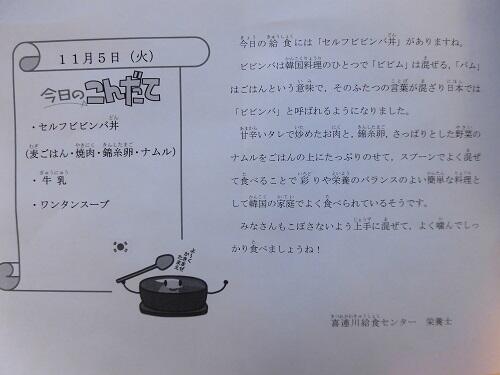 11月5日（火）
今日のこんだて
・セルフビビンバ丼
（麦ごはん・焼肉・錦糸卵・ナムル）
・牛乳
・ワンタンスープ
よーくかきまぜたまえ
今日の給食には「セルフビビンバ丼」がありますね。
ビビンバは韓国料理のひとつで「ビビム」は混ぜる，「バム」
はごはんという意味で，そのふたつの言葉が混ざり日本では
「ビビンバ」と呼ばれるようになりました。
甘辛いタレで炒めたお肉と，錦糸卵，さっぱりとした野菜の
ナムルをごはんの上にたっぷりのせて，スプーンでよく混ぜ
て食べることで彩りや栄養のバランスのよい簡単な料理と
して韓国の家庭でよく食べられているそうです。
みなさんもこぼさないよう上手に混ぜて，よく噛んでしっ
かり食べましょうね！
喜連川給食センター　栄養士